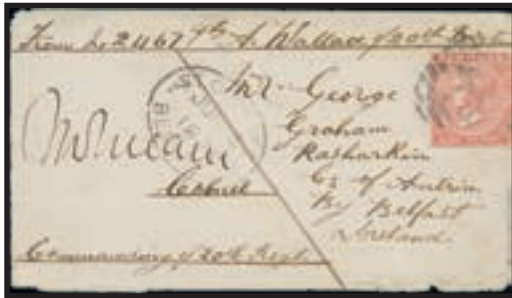 From No 2467 Pte S. Wallace 20th Regt
Mr George
Graham
Rasharkin
Co of Antrim
By Belfast
Ireland
Colonel
Commanding 20th Regt